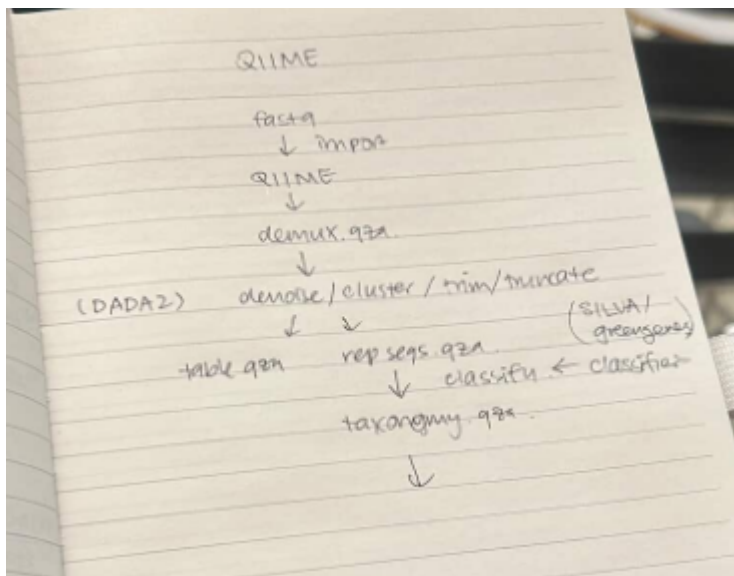 QIIME
fastq
↓ import
QIIME
↓
demux.qza
↓
(DADA2) denoise/cluster/trim/truncate
↓ ↓
(SILVA/
greengenes)
table.qza rep seqs.qza
↓ classify ← classifier
taxonomy.qza
↓